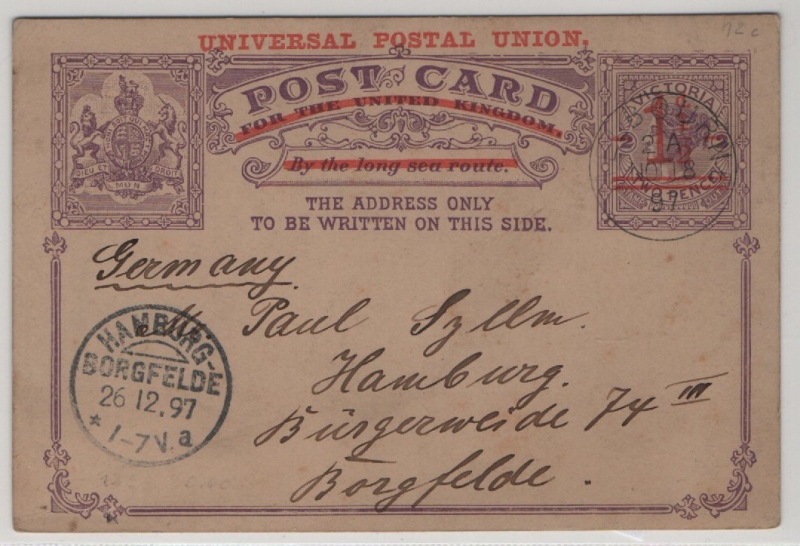 12c
UNIVERSAL POSTAL UNION.
POST CARD
FOR THE UNITED KINGDOM.
By the long sea route.
THE ADDRESS ONLY
TO BE WRITTEN ON THIS SIDE.
DIEU ET MON DROIT
VICTORIA
1½
2 A
NO 8
97
TWO PENCE
Germany.
Paul Szllm.
Hamburg.
Bürgerweide 74 III
Borgfelde.
HAMBURG-
BORGFELDE
26 12.97
* 1-7V. a